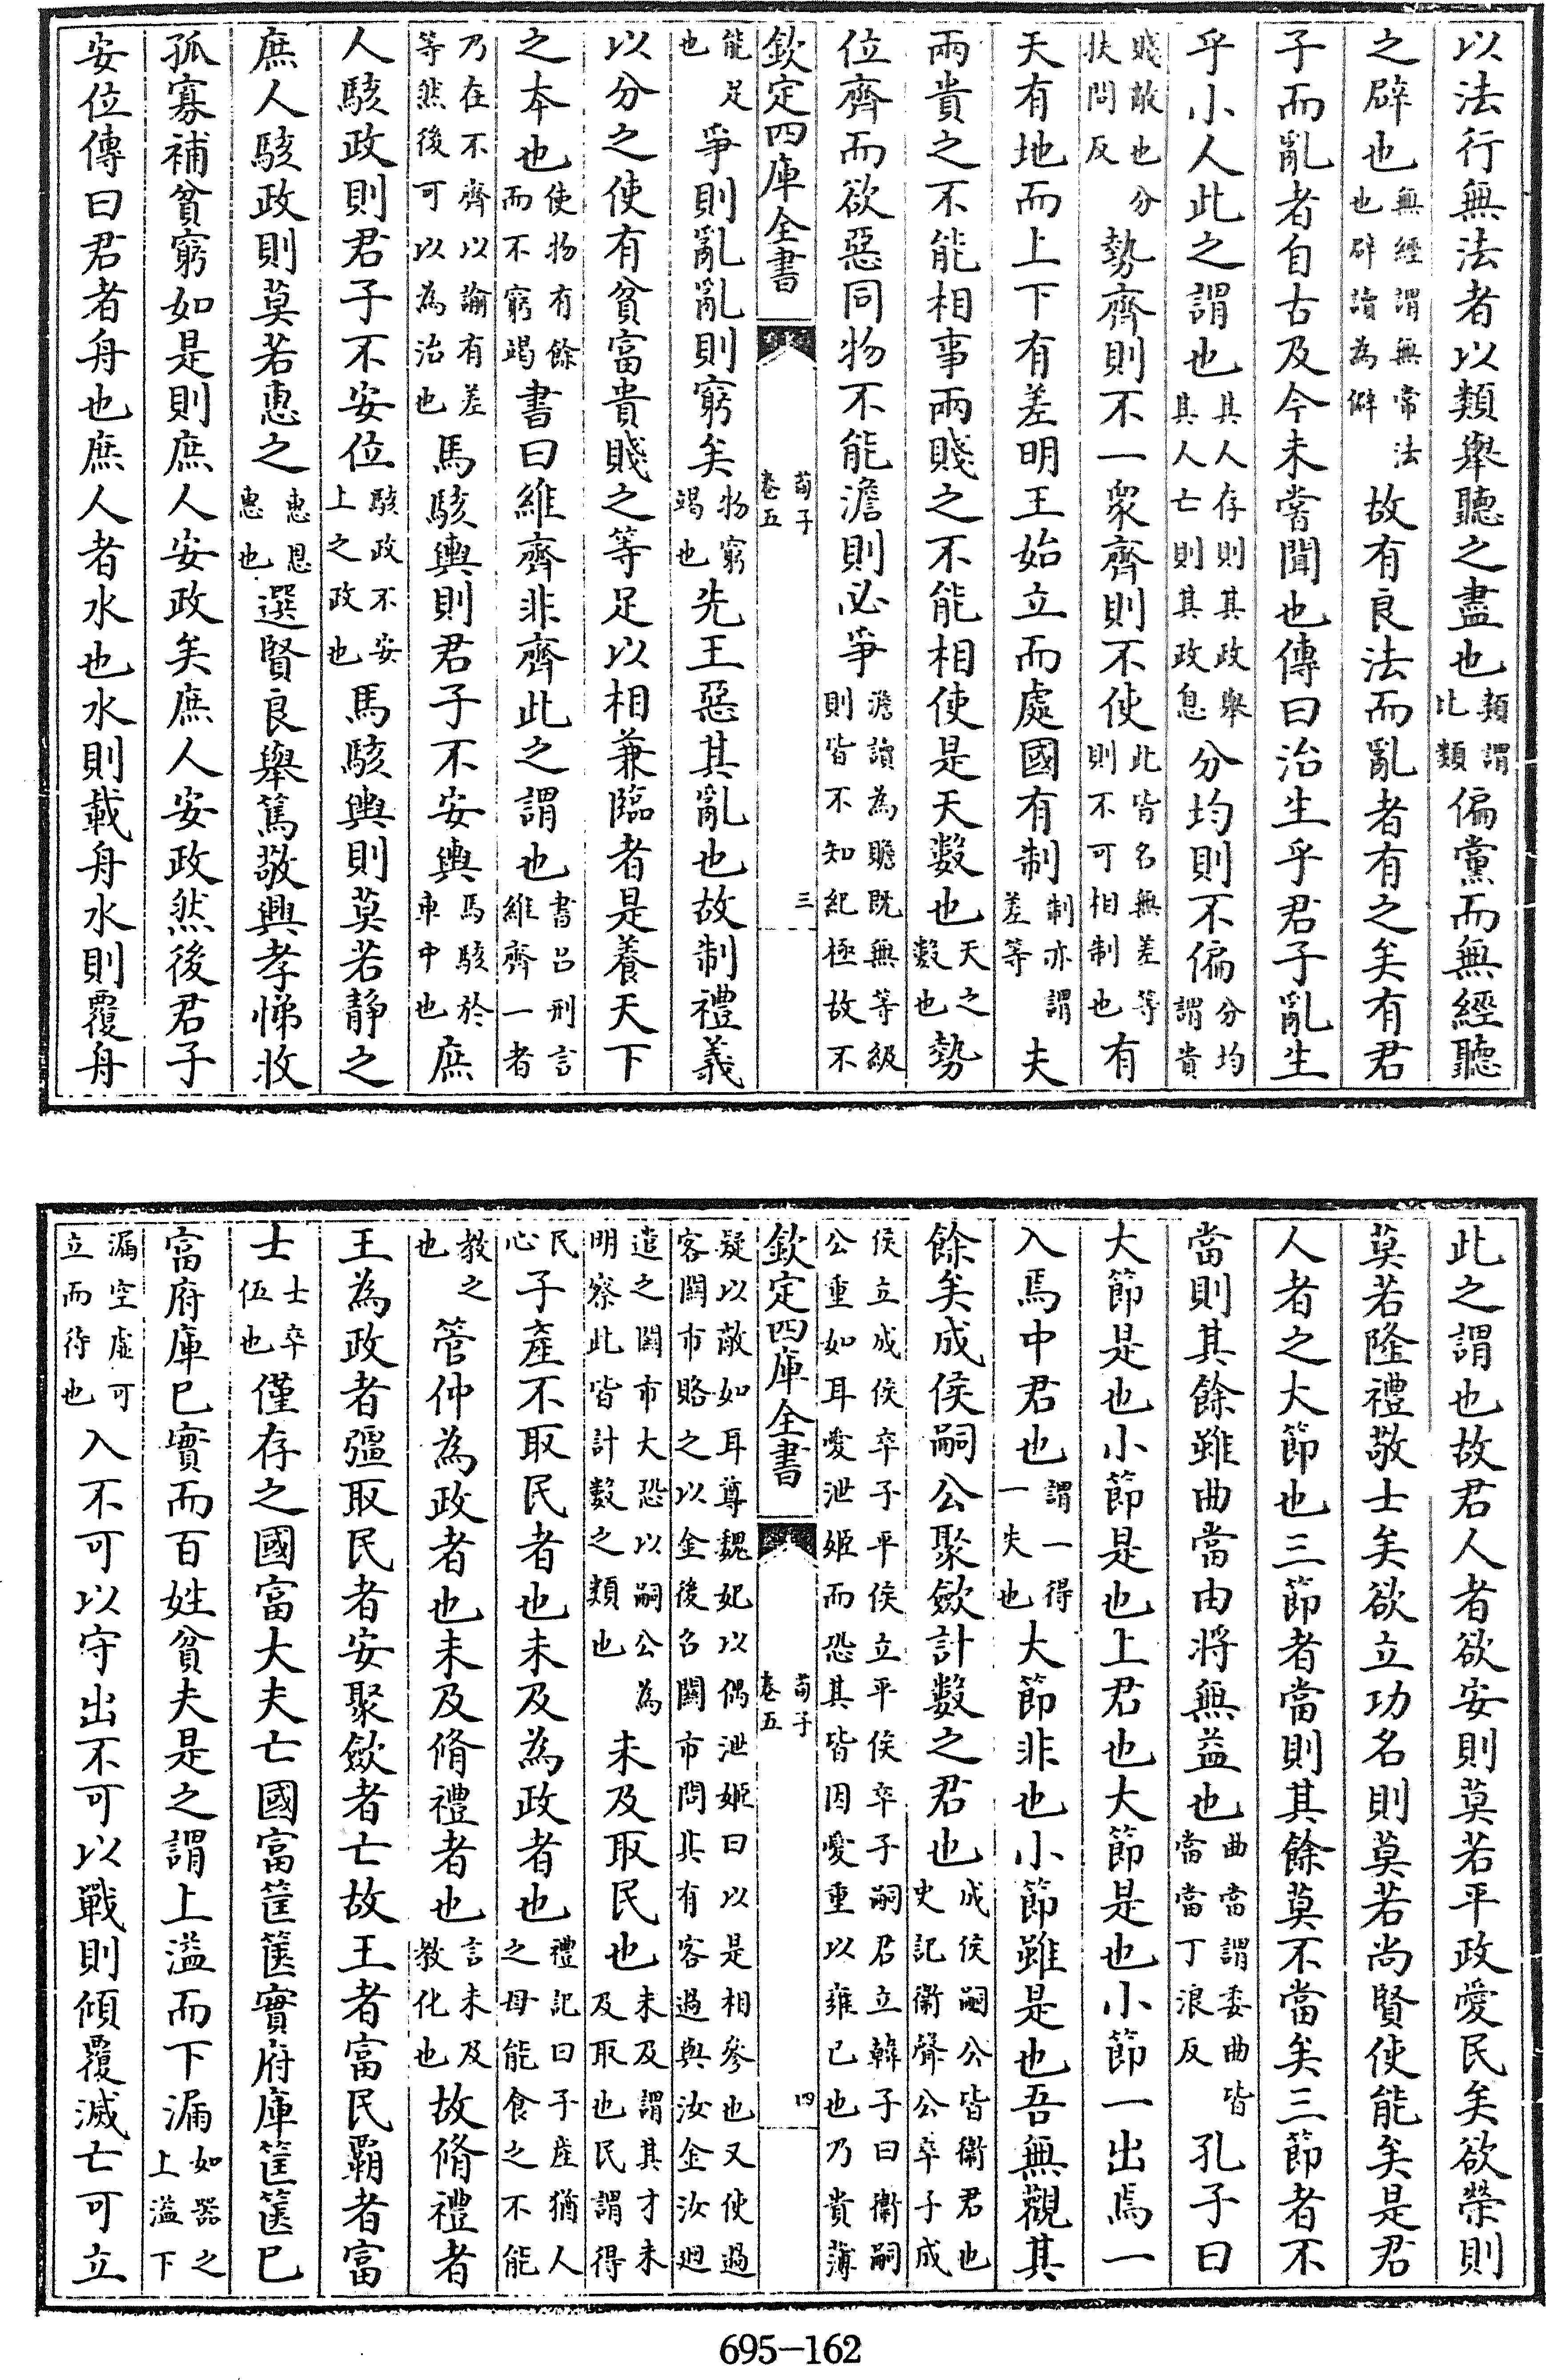 以法行無法者以類舉聽之盡也類謂比類偏黨而無經聽
之辟也無經謂無常法也辟讀為僻故有良法而亂者有之矣有君
子而亂者自古及今未嘗聞也傳曰治生乎君子亂生
乎小人此之謂也其人存則其政舉其人亡則其政息分均則不偏分均謂貴
賤敵也分扶問反勢齊則不一衆齊則不使此皆名無差等則不可相制也有
天有地而上下有差明王始立而處國有制制亦謂差等夫
兩貴之不能相事兩賤之不能相使是天數也天之數也勢
位齊而欲惡同物不能澹則必爭澹讀為贍既無等級則皆不知紀極故不
欽定四庫全書 荀子卷五 三
能足也爭則亂亂則窮矣物窮竭也先王惡其亂也故制禮義
以分之使有貧富貴賤之等足以相兼臨者是養天下
之本也使物有餘而不窮竭書曰維齊非齊此之謂也書吕刑言維齊一者
乃在不齊以諭有差等然後可以為治也馬駭輿則君子不安輿馬駭於車中也庶
人駭政則君子不安位駭政不安上之政也馬駭輿則莫若静之
庶人駭政則莫若惠之惠恩惠也選賢良舉篤敬興孝悌收
孤寡補貧窮如是則庶人安政矣庶人安政然後君子
安位傳曰君者舟也庶人者水也水則載舟水則覆舟
此之謂也故君人者欲安則莫若平政愛民矣欲榮則
莫若隆禮敬士矣欲立功名則莫若尚賢使能矣是君
人者之大節也三節者當則其餘莫不當矣三節者不
當則其餘雖曲當由將無益也曲當謂委曲皆當當丁浪反孔子曰
大節是也小節是也上君也大節是也小節一出焉一
入焉中君也謂一得一失也大節非也小節雖是也吾無觀其
餘矣成侯嗣公聚歛計數之君也成侯嗣公皆衛君也史記衛聲公卒子成
侯立成侯卒子平侯立平侯卒子嗣君立韓子曰衛嗣公重如耳愛泄姬而恐其皆因愛重以雍已也乃貴薄
欽定四庫全書 荀子卷五 四
疑以敵如耳尊魏妃以偶泄姬曰以是相參也又使過客闗市賂之以金後召闗市問其有客過與汝金汝廻
遣之闗市大恐以嗣公為明察此皆計數之類也未及取民也未及謂其才未及取也民謂得
民心子產不取民者也未及為政者也禮記曰子產猶人之母能食之不能
教之也管仲為政者也未及脩禮者也言未及教化也故脩禮者
王為政者彊取民者安聚歛者亡故王者富民霸者富
士士卒伍也僅存之國富大夫亡國富筐篋實府庫筐篋已
富府庫已實而百姓貧夫是之謂上溢而下漏如器之上溢下
漏空虛可立而待也入不可以守出不可以戰則傾覆滅亡可立
695-162